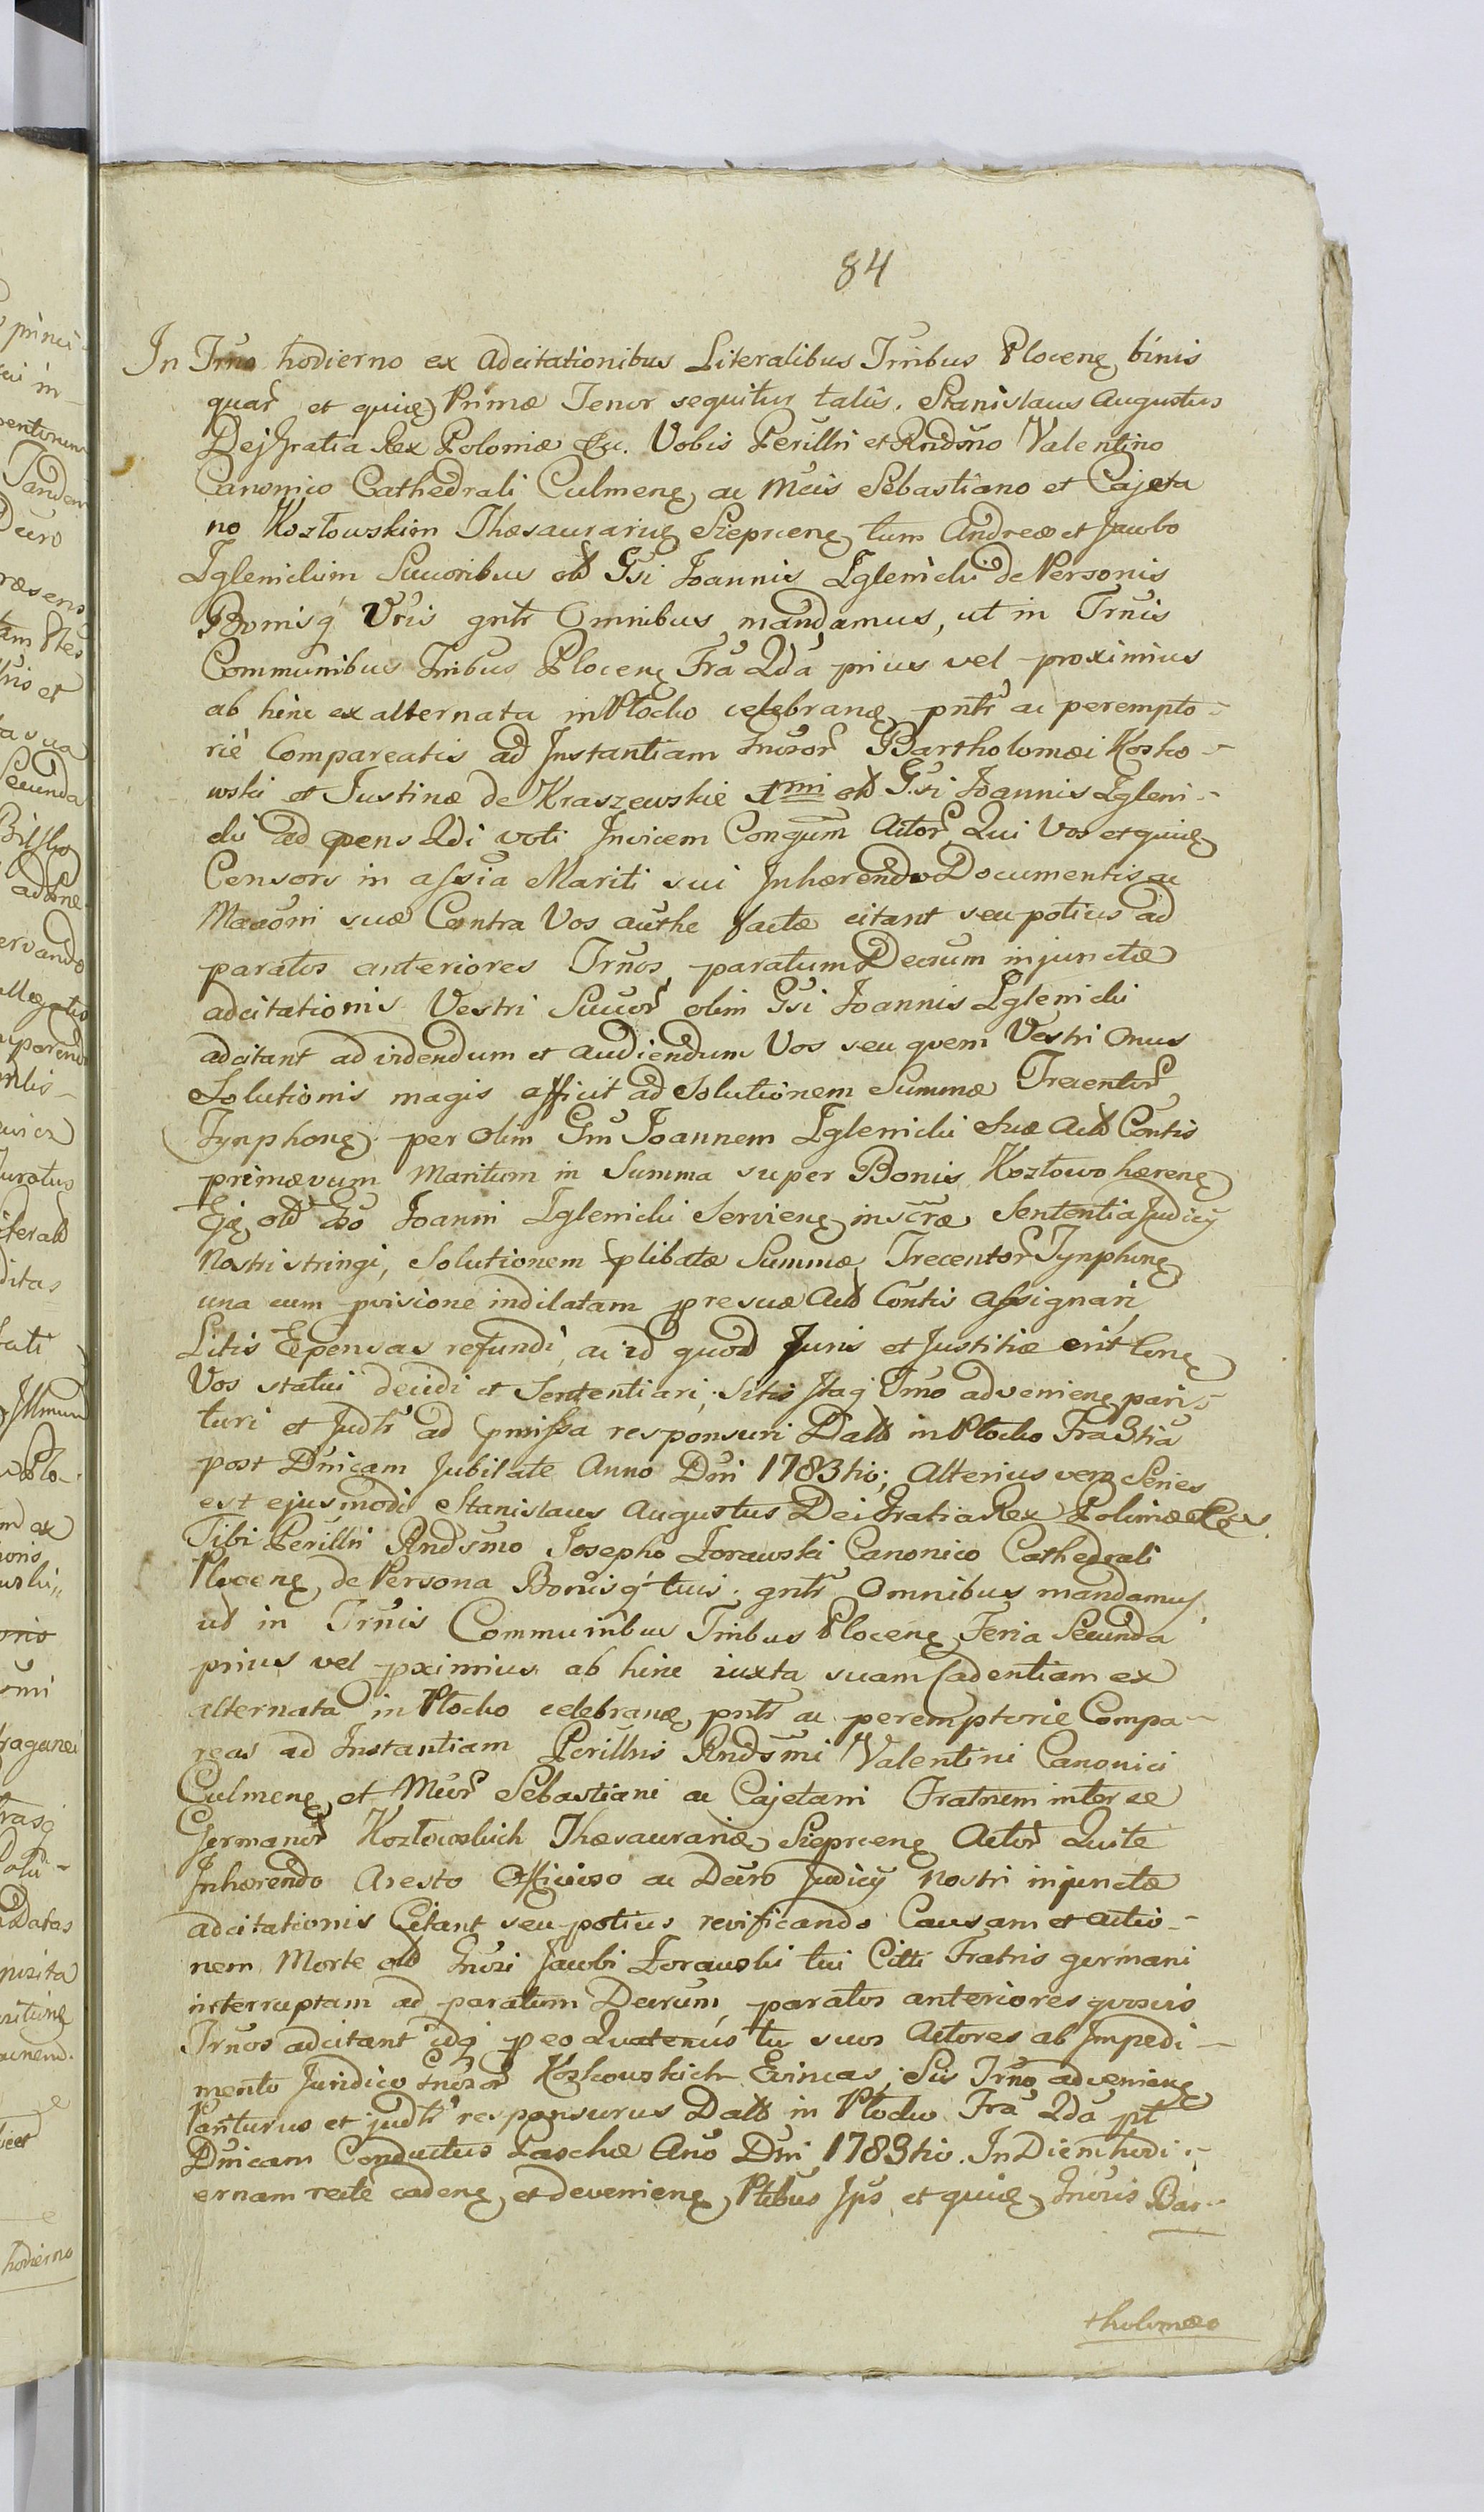 84
In Trno hodierno ex adcitationibus Literalibus Trribus Plocens binis
quar et quius Primæ Tenor sequitur talis. Stanislaus Augustus
Dej Gratia Rex Poloniæ &c. Vobis Perillri et Rndsmo Valentino
Canonico Cathedrali Culmens ac Mcis Sebastiano et Cajeta
no Kozłowskim Thesaurarius Siepcens tum Andreæ et Jacobo
Zglenickim Succoribus old Gsi Joannis Zglenicki de Personis
Bonisq Vris gntr Omnibus mandamus, ut in Trnis
Communibus Tribus Plocens Fra 2da prius vel proximius
ab hinc ex alternata in Płocko celebrans pntr ac perempto-
rie Compareatis ad Instantiam Gnosor Bartholomæi Kosko-
wski et Justinæ de Kraszewskie 1mi old Gsi Joannis Zgleni-
cki ad pens 2di voti Invicem Congum Actor Qui Vos et quius
Censors in assia Mariti sui Inhærendo Documentis ac
Maoni suæ Contra Vos authe factæ citant seu potius ad
paratos anteriores Trnos, paratum Decrum injunctæ
adcitationis Vestri Succor olim Gsi Joannis Zglenicki
adcitant ad videndum et audiendum Vos seu quem Vestri Onus
Solutionis magis afficit ad Solutionem Summæ Trecentor
Tynphons per olim Gm Joannem Zglenicki Suæ Actd Contis
primævum Maritum in Summa super Bonis Kozłowo hærens
Ejs old Gso Joanni Zglenicki Serviens inscræ Sententia Judicij
Nostri stringi, Solutionem plibatæ Summæ Trecentor Tynphons
una cum provisione indilatam pre suæ Actd Contis assignari,
Litis Expensas refundi, ac id quod Juris et Justitiæ erit
Vos statui decidi et Sententiari, Sitis Itaq Trno adveniens pari-
turi et Judtr ad pmissa responsuri Datt in Płocko Fra 3tia
post Dnicam Jubilate Anno Dni 1783tio; Alterius vero Series
est ejusmodi Stanislaus Augustus Dei Gratia Rex Poloniæ &c
Tibi Perillri Rndsmo Josepho Zorawski Canonico Cathedrali
Plocens, de Persona Bonisq tuis gntr Omnibus mandamus,
ut in Trnis Communibus Tribus Plocens Feria Secunda
prius vel pximius ab hinc iuxta suam Cadentiam ex
alternata in Płocko celebrans pntr ac peremptorie Compa-
reas ad Instantiam Perillris Rndsmi Valentini Canonici
Culmens et Mcor Sebastiani ac Cajetani Fratrum inter se
Germanor Kozłowskich Thesaurariæ Siepcens Actor Qui te
Inhærendo Aresto Officioso ac Decro Judicij Nostri injunctæ
adcitationis Citant seu potius revificando Causam et actio-
nem Morte old Gnosi Jacobi Zorawski tui Citti Fratris germani
interruptam ad paratum Decrum, paratos anteriores quosvis
Trnos adcitant idq peo Quatenus tu suos Actores ab Impedi-
mento Juridico Gnosor Koskowskich Evincas, Sis Trno adveniens
Pariturus et judtr responsurus Datt in Płocko Fra 2da pt
Dnicam Conductus Paschæ Ano Dni 1783tio. In Diem hodi-
ernam recte cadens et deveniens Ptibus Ips et quius Gnosis Bar-
tholomæo